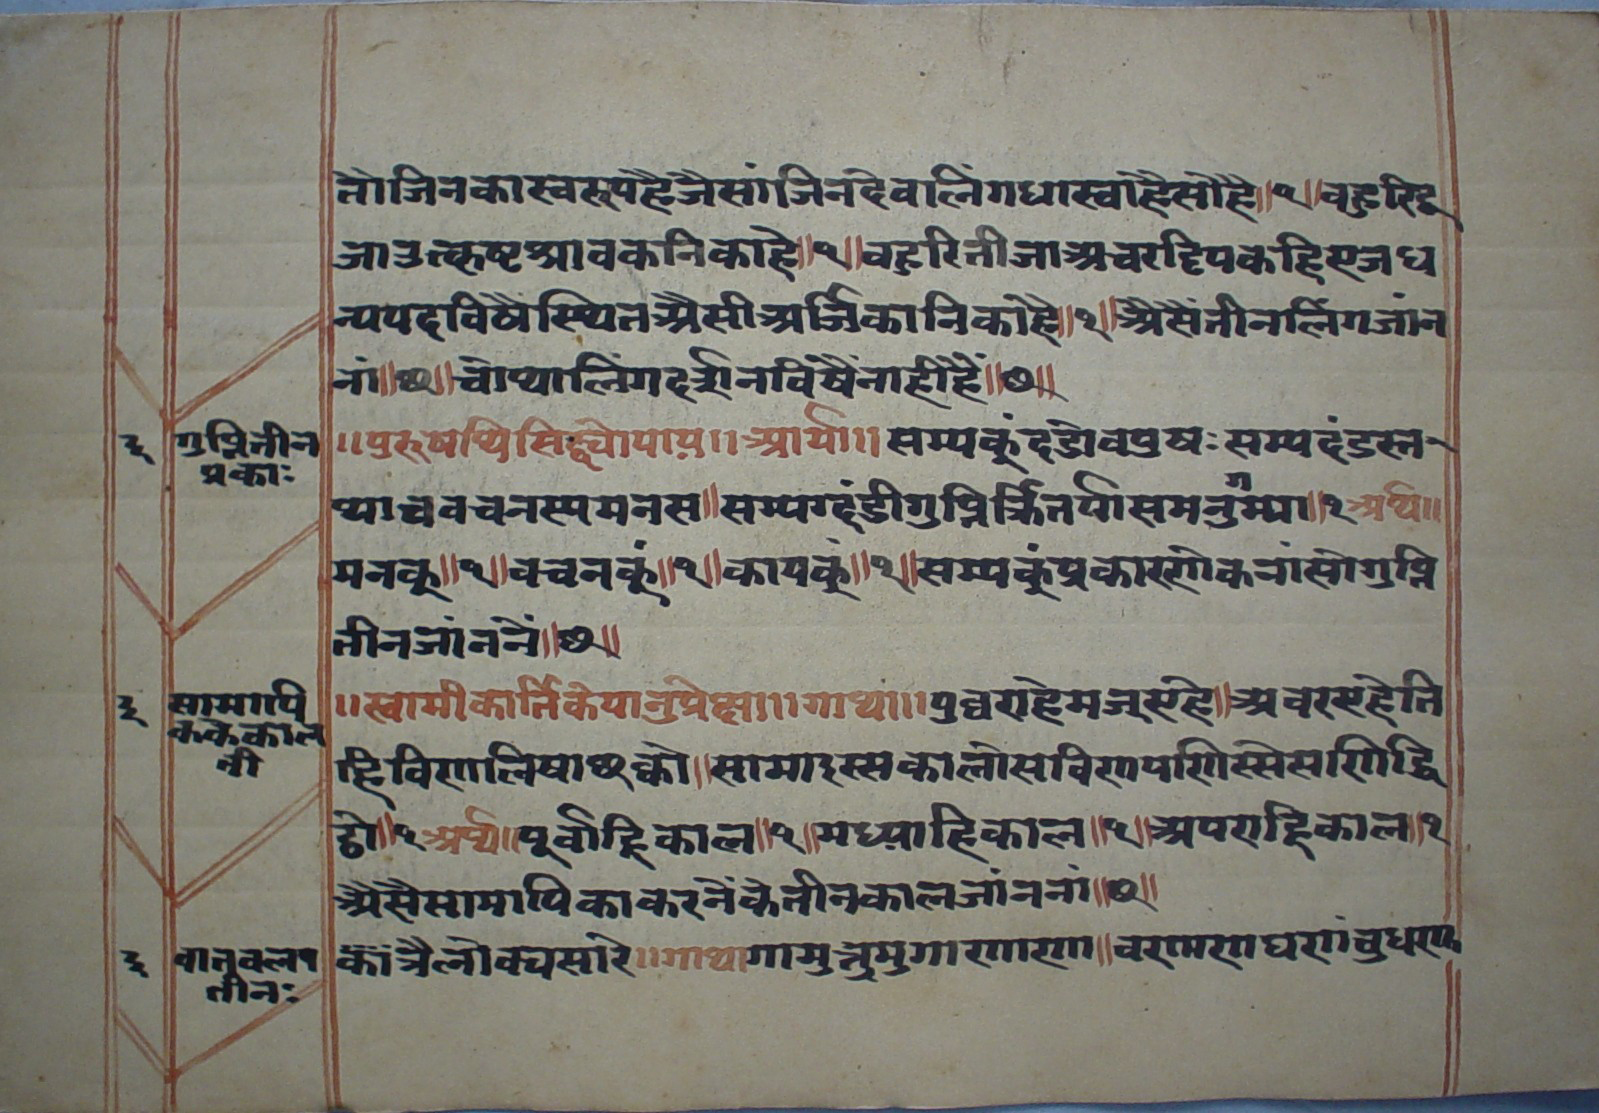 तौजिनकोस्वरूपहैजैसांजिनदेवालिंगधास्वोहैसोहै॥१॥वहुरिदू
जाउत्कृष्टश्रावकनिकाहे॥१॥वहुरितीजाअवरट्ठियकहिएजघ
न्यपदविषैस्थितअैसीअर्जिकानिकोहै॥१॥अैसैंतीनलिंगजांन
नां॥छ॥चोथालिंगदर्शनविषैंनाहीहैं॥छ॥
३ गुप्तितीन प्रकाः ॥पुरूषार्थसिद्ध्योपाय॥आर्या॥सम्यकूंदंडोवपुषःसम्यदंडस्त
थाचवचनस्यमनस॥सम्यग्दंडीगुप्तिर्त्रितयीसमनुगम्या॥१अर्थ॥
मनकू॥१॥वचनकूं॥१॥कायकुं॥१॥सम्यकुंप्रकाररोकनांसोगुप्ति
तीनजांननैं॥छ॥
३ सामायि ककेकाल ती ॥स्वामीकार्तिकेयानुप्रेक्षा॥गाथा॥पुव्वराहेमज्एहे॥अवरएहेति
हिविणालियाछक्को॥सामाइस्सकालोसविणयणिस्सेसणिद्दि
ट्ठो॥१अर्थ॥पूर्वाह्निकाल॥१॥मध्याहिकाल॥१॥अपराह्निकाल॥१
अैसैसामायिकाकरनेंकेतीनकालजांननां॥छ॥
३ वातुवलय तीनः कौंत्रैलोक्यसारे॥गाथागोमुत्तमुगाणाणा॥वणाणघणांवुधण